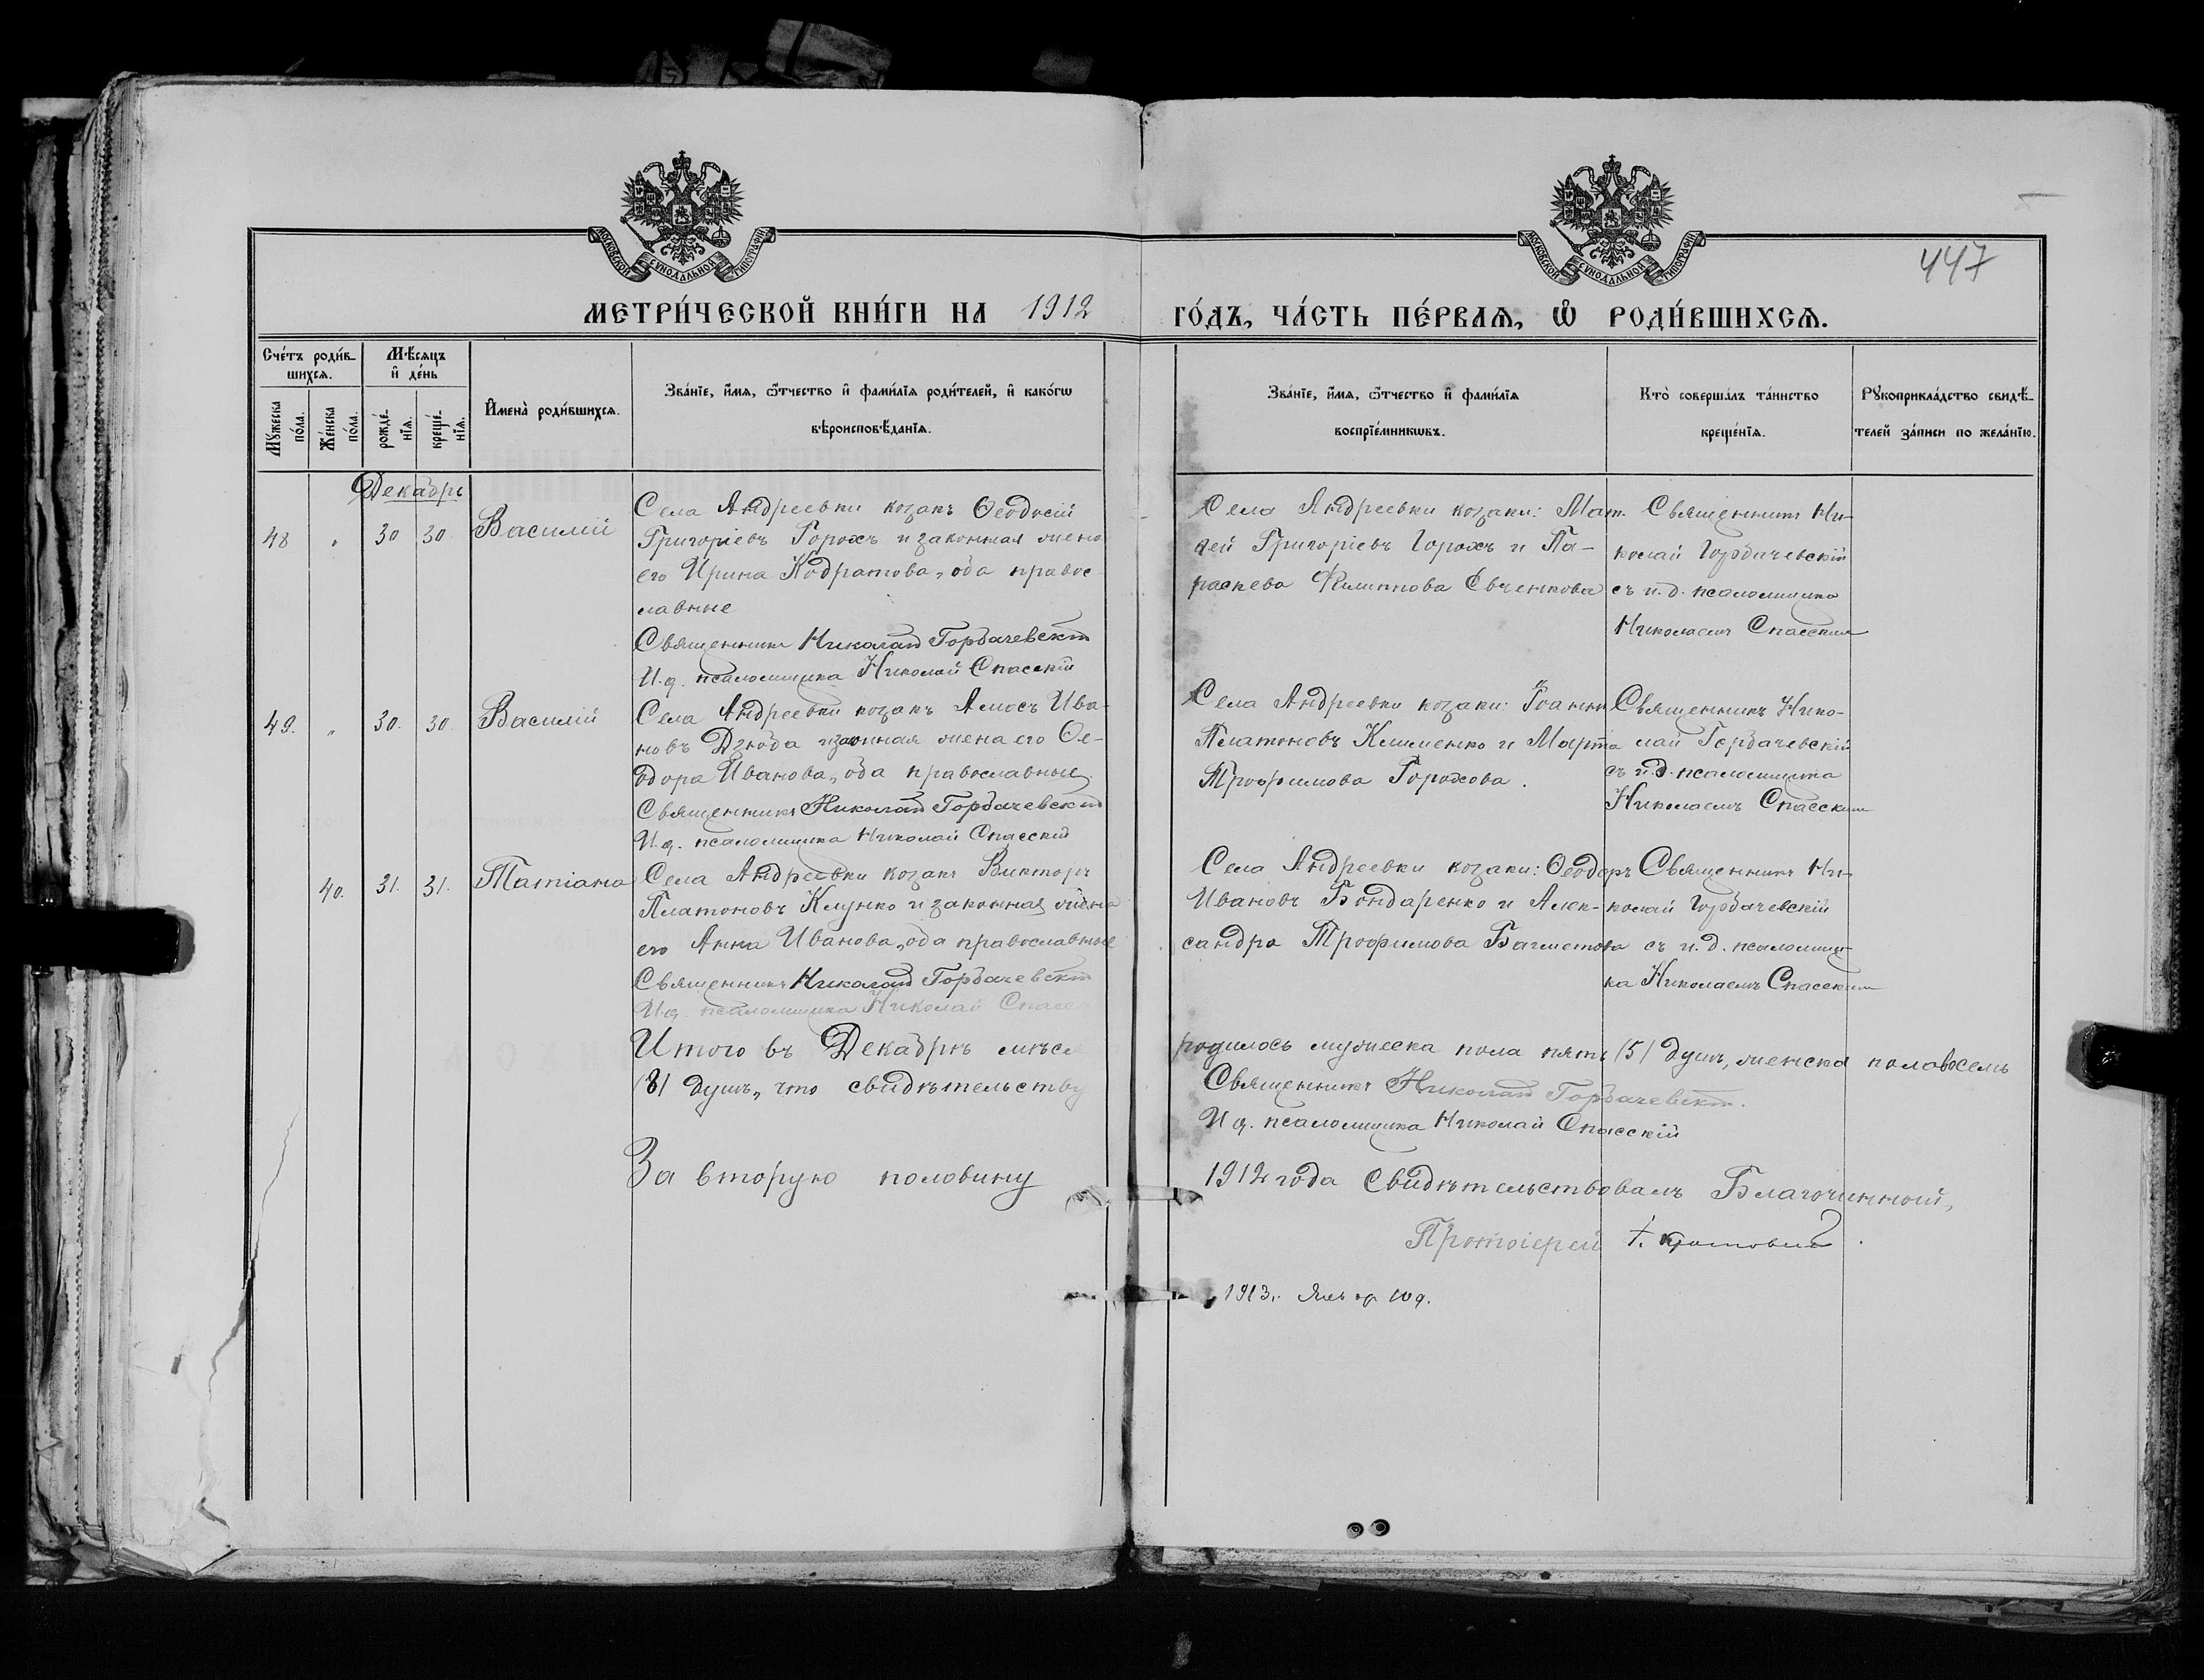 МОСКОВСКОЙ СѴНОДАЛЬНОЙ ТИПОГРАФІИ
МОСКОВСКОЙ СѴНОДАЛЬНОЙ ТИПОГРАФІИ
447
МЕТРИ́ЧЕСКОЙ КНИ́ГИ НА 1912
ГО́ДЪ, ЧА́СТЬ ПЕ́РВАѦ, Ѡ҆ РОДИ́ВШИХСѦ.
Сче́тъ роди́в-
шихсѧ.
Мѣ́сяцъ
и҆ де́нь
Мꙋ́жеска
по́ла.
Же́нска
по́ла.
рожде́-
нїѧ.
креще́-
нїѧ.
И҆мена̀ роди́вшихсѧ.
Зва́нїе, и҆́мѧ, ѻ҆́тчество и҆ фами́лїѧ роди́телей, и҆ како́гѡ
вѣроисповѣ́данїѧ.
Зва́нїе, и҆́мѧ, ѻ҆́тчество и҆ фами́лїѧ
воспрїе́мникѡвъ.
Кто̀ соверша́лъ та́инство
креще́нїѧ.
Рꙋкоприкла́дство свидѣ́-
телей за́писи по жела́нїю.
Декабрь
48 " 30 30 Василій
Села Андреевки козакъ Ѳеодосій
Григоріевъ Горохъ и законная жена
его Ирина Кодратова, оба правос-
лавные
Священникъ Николай Горбачевскій
И.д. псаломщика Николай Спасскій
Села Андреевки козаки: Мат-
ѳей Григоріевъ Горохъ и Па-
раскева Филиппова Евченкова
Священникъ Ни-
колай Горбачевскій
съ и.д. псаломщика
Николаемъ Спасскимъ
49. " 30. 30. Василій
Села Андреевки козакъ Амосъ Ива-
новъ Дзюба и законная жена его Ѳе-
одора Иванова, оба православные
Священникъ Николай Горбачевскій
И.д. псаломщика Николай Спасскій
Села Андреевки козаки: Іоаннъ
Платоновъ Клименко и Марѳа
Трофимова Горохова.
Священникъ Нико-
лай Горбачевскій
съ и.д. псаломщика
Николаемъ Спасскимъ
40. 31. 31. Татіана
Села Андреевки козакъ Викторъ
Платоновъ Клунко и законная жена
его Анна Иванова, оба православные
Священникъ Николай Горбачевскій
И.д. псаломщика Николай Спасс
Села Андреевки козаки: Ѳеодоръ
Ивановъ Бондаренко и Алек-
сандра Трофимова Багметова
Священникъ Ни-
колай Горбачевскій
съ и.д. псаломщи-
ка Николаемъ Спасскимъ
Итого въ Декабрѣ мѣся
родилось мужеска пола пять (5) душъ, женска пола восемь
(8) душъ, что свидѣтельству
Священникъ Николай Горбачевскій.
И д. псаломщика Николай Спасскій
За вторую половину
1912 года свидѣтельствовалъ Благочинный,
Протоіерей
1913.